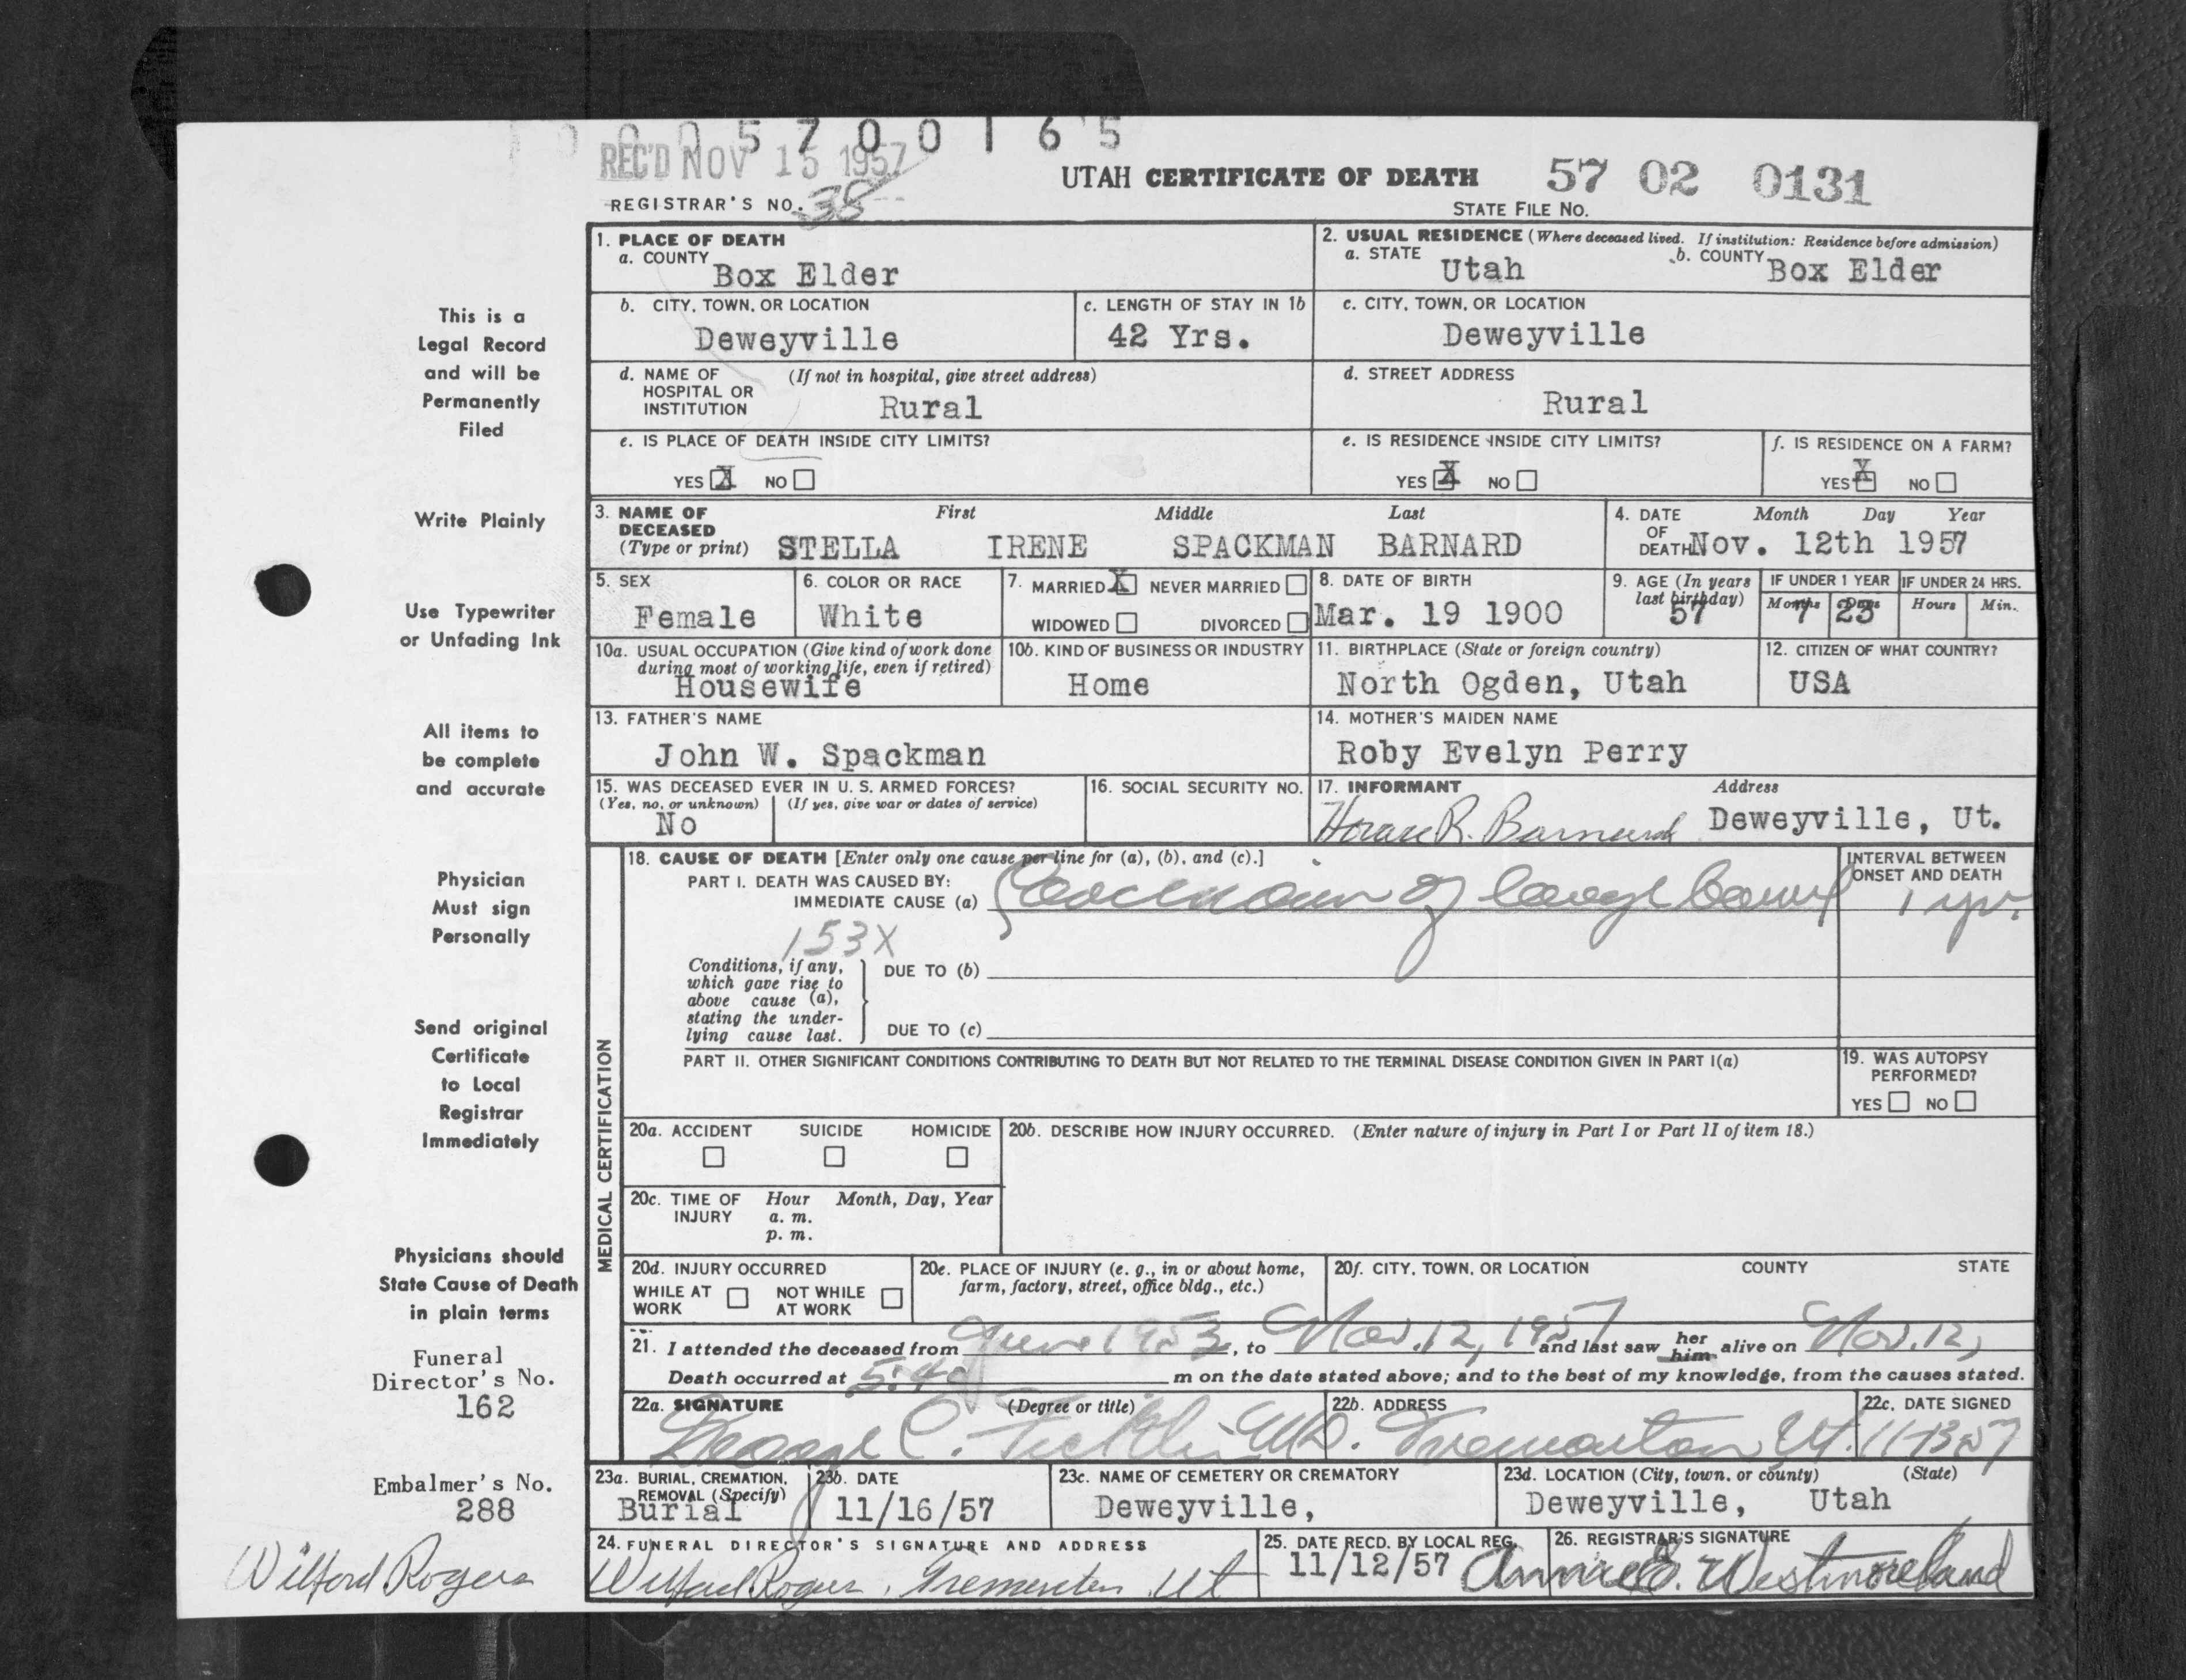 0 0 0 5 7 0 0 1 6 5
REC'D NOV 15 1957
UTAH CERTIFICATE OF DEATH 57 02 0131
REGISTRAR'S NO. 38
STATE FILE NO.
1. PLACE OF DEATH
a. COUNTY Box Elder
2. USUAL RESIDENCE (Where deceased lived. If institution: Residence before admission)
a. STATE Utah b. COUNTY Box Elder
b. CITY, TOWN, OR LOCATION Deweyville
c. LENGTH OF STAY IN 1b 42 Yrs.
c. CITY, TOWN, OR LOCATION Deweyville
d. NAME OF HOSPITAL OR INSTITUTION (If not in hospital, give street address) Rural
d. STREET ADDRESS Rural
e. IS PLACE OF DEATH INSIDE CITY LIMITS?
YES X NO
e. IS RESIDENCE INSIDE CITY LIMITS?
YES X NO
f. IS RESIDENCE ON A FARM?
YES X NO
3. NAME OF DECEASED (Type or print) First Middle Last
STELLA IRENE SPACKMAN BARNARD
4. DATE OF DEATH Month Day Year
Nov. 12th 1957
5. SEX Female
6. COLOR OR RACE White
7. MARRIED X NEVER MARRIED
WIDOWED DIVORCED
8. DATE OF BIRTH Mar. 19 1900
9. AGE (In years last birthday) 57
IF UNDER 1 YEAR Months 7 Days 23
IF UNDER 24 HRS. Hours Min.
10a. USUAL OCCUPATION (Give kind of work done during most of working life, even if retired)
Housewife
10b. KIND OF BUSINESS OR INDUSTRY
Home
11. BIRTHPLACE (State or foreign country)
North Ogden, Utah
12. CITIZEN OF WHAT COUNTRY?
USA
13. FATHER'S NAME
John W. Spackman
14. MOTHER'S MAIDEN NAME
Roby Evelyn Perry
15. WAS DECEASED EVER IN U. S. ARMED FORCES?
(Yes, no, or unknown) (If yes, give war or dates of service)
No
16. SOCIAL SECURITY NO.
17. INFORMANT Address
Horace R. Barnard Deweyville, Ut.
MEDICAL CERTIFICATION
18. CAUSE OF DEATH [Enter only one cause per line for (a), (b), and (c).]
PART I. DEATH WAS CAUSED BY:
IMMEDIATE CAUSE (a) Carcinoma of large bowel
INTERVAL BETWEEN ONSET AND DEATH
1 yr.
153X
Conditions, if any, which gave rise to above cause (a), stating the underlying cause last.
DUE TO (b)
DUE TO (c)
PART II. OTHER SIGNIFICANT CONDITIONS CONTRIBUTING TO DEATH BUT NOT RELATED TO THE TERMINAL DISEASE CONDITION GIVEN IN PART I(a)
19. WAS AUTOPSY PERFORMED?
YES NO
20a. ACCIDENT SUICIDE HOMICIDE
20b. DESCRIBE HOW INJURY OCCURRED. (Enter nature of injury in Part I or Part II of item 18.)
20c. TIME OF INJURY Hour Month, Day, Year
a. m.
p. m.
20d. INJURY OCCURRED
WHILE AT WORK NOT WHILE AT WORK
20e. PLACE OF INJURY (e. g., in or about home, farm, factory, street, office bldg., etc.)
20f. CITY, TOWN, OR LOCATION COUNTY STATE
21. I attended the deceased from June 1953, to Nov. 12, 1957 and last saw her him alive on Nov. 12,
Death occurred at 5:40 m on the date stated above; and to the best of my knowledge, from the causes stated.
22a. SIGNATURE (Degree or title)
George C. M.D.
22b. ADDRESS
Tremonton Ut.
22c. DATE SIGNED
11-13-57
23a. BURIAL, CREMATION, REMOVAL (Specify)
Burial
23b. DATE
11/16/57
23c. NAME OF CEMETERY OR CREMATORY
Deweyville,
23d. LOCATION (City, town, or county) (State)
Deweyville, Utah
24. FUNERAL DIRECTOR'S SIGNATURE AND ADDRESS
Wilford Rogers, Tremonton Ut
25. DATE RECD. BY LOCAL REG.
11/12/57
26. REGISTRAR'S SIGNATURE
Annie E. Westmoreland
This is a
Legal Record
and will be
Permanently
Filed
Write Plainly
Use Typewriter
or Unfading Ink
All items to
be complete
and accurate
Physician
Must sign
Personally
Send original
Certificate
to Local
Registrar
Immediately
Physicians should
State Cause of Death
in plain terms
Funeral
Director's No.
162
Embalmer's No.
288
Wilford Rogers